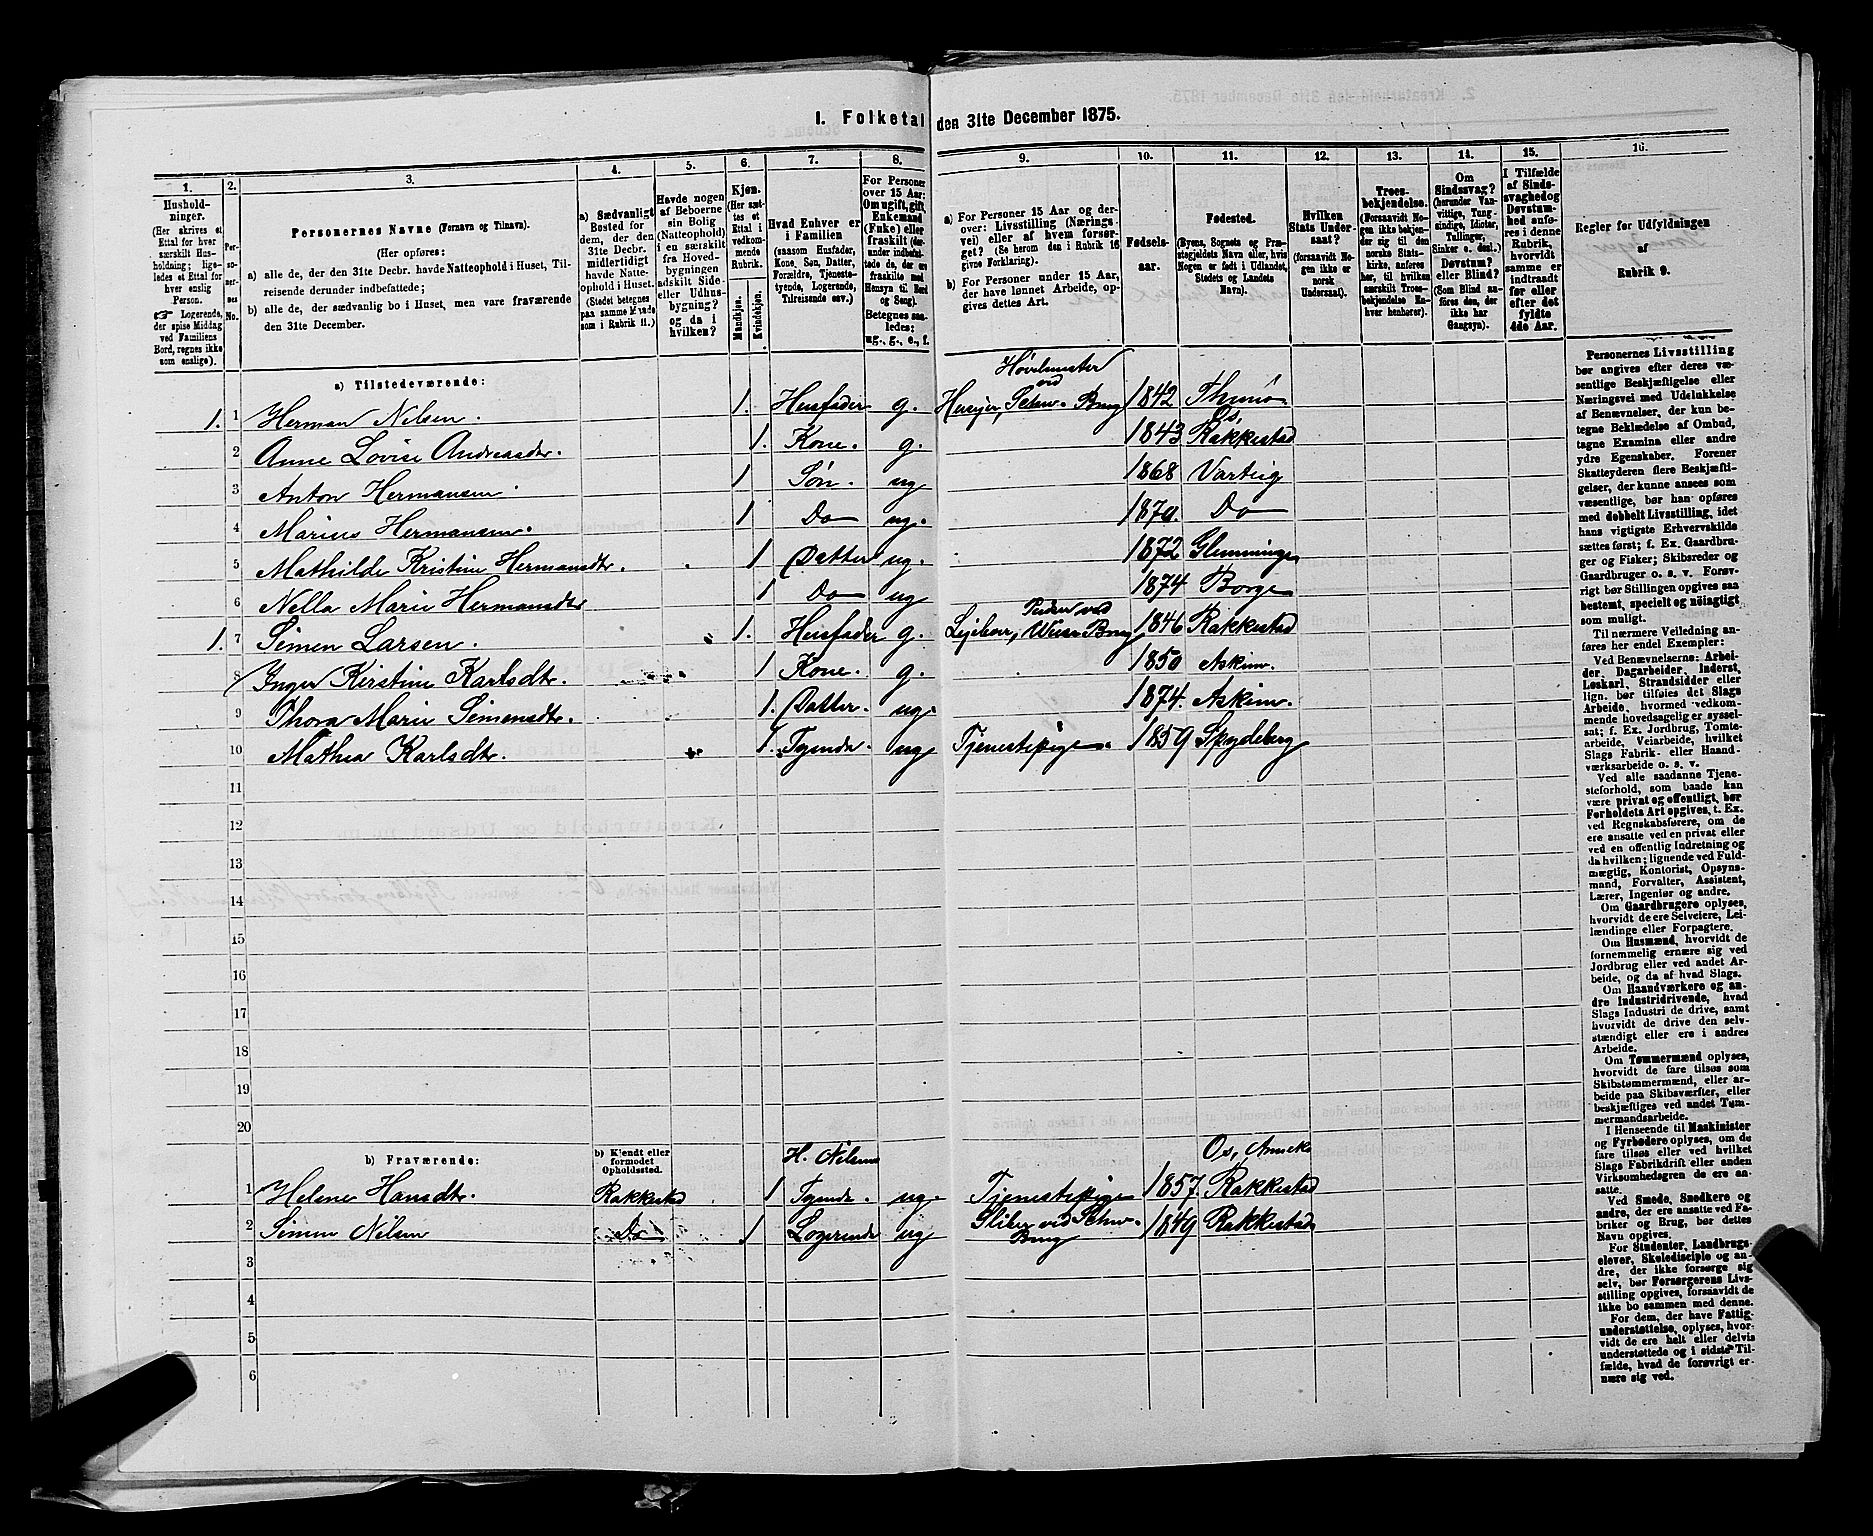 1. Folketal den 31te December 1875.
1. 2. 3. 4. 5. 6. 7. 8. 9. 10. 11. 12. 13. 14. 15. 16.
Husholdninger.
(Her skrives et
Ettal for hver
særskilt Husholdning;
ligeledes et Ettal for
hver enslig
Person.
☞ Logerende,
der spise Middag
ved Familiens
Bord, regnes ikke
som enslige).
Personernes No.
Personernes Navne (Fornavn og Tilnavn).
(Her opføres:
a) alle de, der den 31te Decbr. havde Natteophold i Huset, Tilreisende derunder indbefattede;
b) alle de, der sædvanlig bo i Huset, men vare fraværende
den 31te December.
a) Sædvanligt
Bosted for
dem, der den
31te Decbr.
midlertidigt
havde Natteophold
i Huset.
(Stedet betegnes
paa samme Maade
som i Rubrik 11.)
Havde nogen
af Beboerne
sin Bolig
(Natteophold)
i en særskilt
fra Hovedbygningen
adskilt Side-
eller Udhusbygning?
og da i
hvilken?
Kjøn.
(Her sættes et
Ettal i
vedkommende
Rubrik.
Mandkjøn.
Kvindekjøn.
Hvad Enhver er
i Familien
(saasom Husfader,
Kone, Søn, Datter,
Forældre, Tjenestetyende,
Logerende,
Tilreisende osv.)
For Personer
over 15 Aar:
Om ugift, gift,
Enkemand
(Enke) eller
fraskilt (derunder
indbefattede
de, der ere
fraskilte med
Hensyn til Bord
og Seng).
Betegnes saaledes:
ug., g., e., f.
a) For Personer 15 Aar og derover:
Livsstilling (Næringsvei)
eller af hvem forsørget?
(Se herom den i Rubrik 16
givne Forklaring).
b) For Personer under 15 Aar,
der have lønnet Arbeide, opgives
dettes Art.
Fødselsaar.
Fødested.
(Byens, Sognets og Præstegjeldets
Navn, eller, hvis
Nogen er født i Udlandet,
Stedets og Landets
Navn).
Hvilken
Stats Undersaat?
(forsaavidt Nogen
ikke er
norsk
Undersaat).
Troesbekjendelse.
(Forsaavidt Nogen
ikke bekjender
sig til den
norske Statskirke,
anføres
her, til hvilken
særskilt Troesbekjendelse
Enhver
henhører).
Om
Sindssvag?
(herunder Vanvittige,
Tungsindige,
Idioter,
Tullinger,
Sinker o. desl.)
Døvstum?
eller Blind?
(Som Blind anføres
den, der
ikke har
Gangsyn).
I Tilfælde
af Sindssvaghed
og
Døvstumhed
anføres
i denne
Rubrik,
hvorvidt
samme er
indtraadt
før eller
efter det
fyldte
4de Aar.
Regler for Udfyldningen
af
Rubrik 9.
a) Tilstedeværende:
Høvelmester
ved
1. 1 Herman Nilsen. 1. Husfader g. Huseier, Schw. Brug 1842 Thunø
Os,
2 Anne Lovise Andreasdtr. 1. Kone. g. 1843 Rakkestad
3 Anton Hermansen. 1 Søn. ug 1868 Varteig
4 Marius Hermansen. 1 Do ug. 1870. Do
5 Mathilde Kristine Hermansdtr. 1 Datter ug. 1872 Glemminge
6 Nella Marie Hermansdtr 1 Do ug 1874 Borge
1. 7 Simen Larsen. 1. Husfader g. Leieboer, Brug 1846 Rakkestad
8 Inger Kirstine Karlsdtr. 1 Kone. g. 1850 Askim.
9 Thora Marie Simensdtr. 1. Datter. ug. 1874. Askim.
10 Mathea Karlsdtr. 1. Tyende. ug Tjenestepige. 1859 Spydeberg
11
12
13
14
15
16
17
18
19
20
b) Fraværende:
b) Kjendt eller
formodet
Opholdssted.
H. Nilsens
Os, Anneks
1 Helene Hansdtr. Rakkestad 1 Tyende. ug. Tjenestepige 1857. Rakkestad
2 Simen Nilsen Do 1 Logerende ug Sliber ved Schw. 1849 Rakkestad
Brug
3
4
5
6
Personernes Livsstilling
bør angives efter deres væsentlige
Beskjæftigelse eller
Næringsvei med Udelukkelse
af Benævnelser, der kun betegne
Beklædelse af Ombud,
tagne Examina eller andre
ydre Egenskaber. Forener
Skatteyderen flere Beskjæftigelser,
der kunne ansees som
væsentlige, bør han opføres
med dobbelt Livsstilling, idet
hans vigtigste Erhvervskilde
sættes først; f. Ex. Gaardbruger
og Fisker; Skibsreder og
Gaardbruger o. s. v. Forøvrigt
bør Stillingen opgives saa
bestemt, specielt og nøiagtigt
som muligt.
Til nærmere Veiledning anføres
her endel Exempler:
Ved Benævnelserne: Arbeider,
Dagarbeider, Inderst,
Løskarl, Strandsidder eller
lign. bør tilføies det Slags
Arbeide, hvormed vedkommende
hovedsagelig er sysselsat;
f. Ex. Jordbrug, Tomtearbeide,
Veiarbeide, hvilket
Slags Fabrik- eller Haandværksarbeide
o. s. v.
Ved alle saadanne Tjenesteforhold,
som baade kan
være privat og offentligt, bør
Forholdets Art opgives, t. Ex.
ved Regnskabsførere, om de
ere ansatte ved en privat eller
ved en offentlig Indretning og
da hvilken; lignende ved Fuldmægtig,
Kontorist, Opsynsmand,
Forvalter, Assistent,
Lærer, Ingeniør og andre.
Om Gaardbrugere oplyses,
hvorvidt de ere Selveiere, Leilændinge
eller Forpagtere.
Om Husmænd, hvorvidt de
fornemmelig ernære sig ved
Jordbrug eller ved andet Arbeide,
og da af hvad Slags.
Om Haandværkere og andre
Industridrivende, hvad
Slags Industri de drive, samt
hvorvidt de drive den selvstændigt
eller ere i andres
Arbeide.
Om Tømmermænd oplyses,
hvorvidt de fare tilsøs som
Skibstømmermænd, eller arbeide
paa Skibsværfter, eller
beskjæftiges ved andet Tømmermandsarbeide.
I Henseende til Maskinister
og Fyrbødere oplyses, om de
fare tilsøs eller ved hvilket
Slags Fabrikdrift eller anden
Virksomhedsgren de ere ansatte.
Ved Smede, Snedkere og
andre, der ere ansatte ved Fabriker
og Brug, bør dettes
Navn opgives.
For Studenter, Landbrugselever,
Skoledisciple og andre,
der ikke forsørge sig
selv, bør Forsørgerens Livsstilling
opgives, forsaavidt de
ikke bo sammen med denne.
For dem, der have Fattigunderstøttelse,
oplyses, hvorvidt
de ere helt eller delvis
understøttede og i sidste Tilfælde,
hvad de forøvrigt ernære
sig ved.